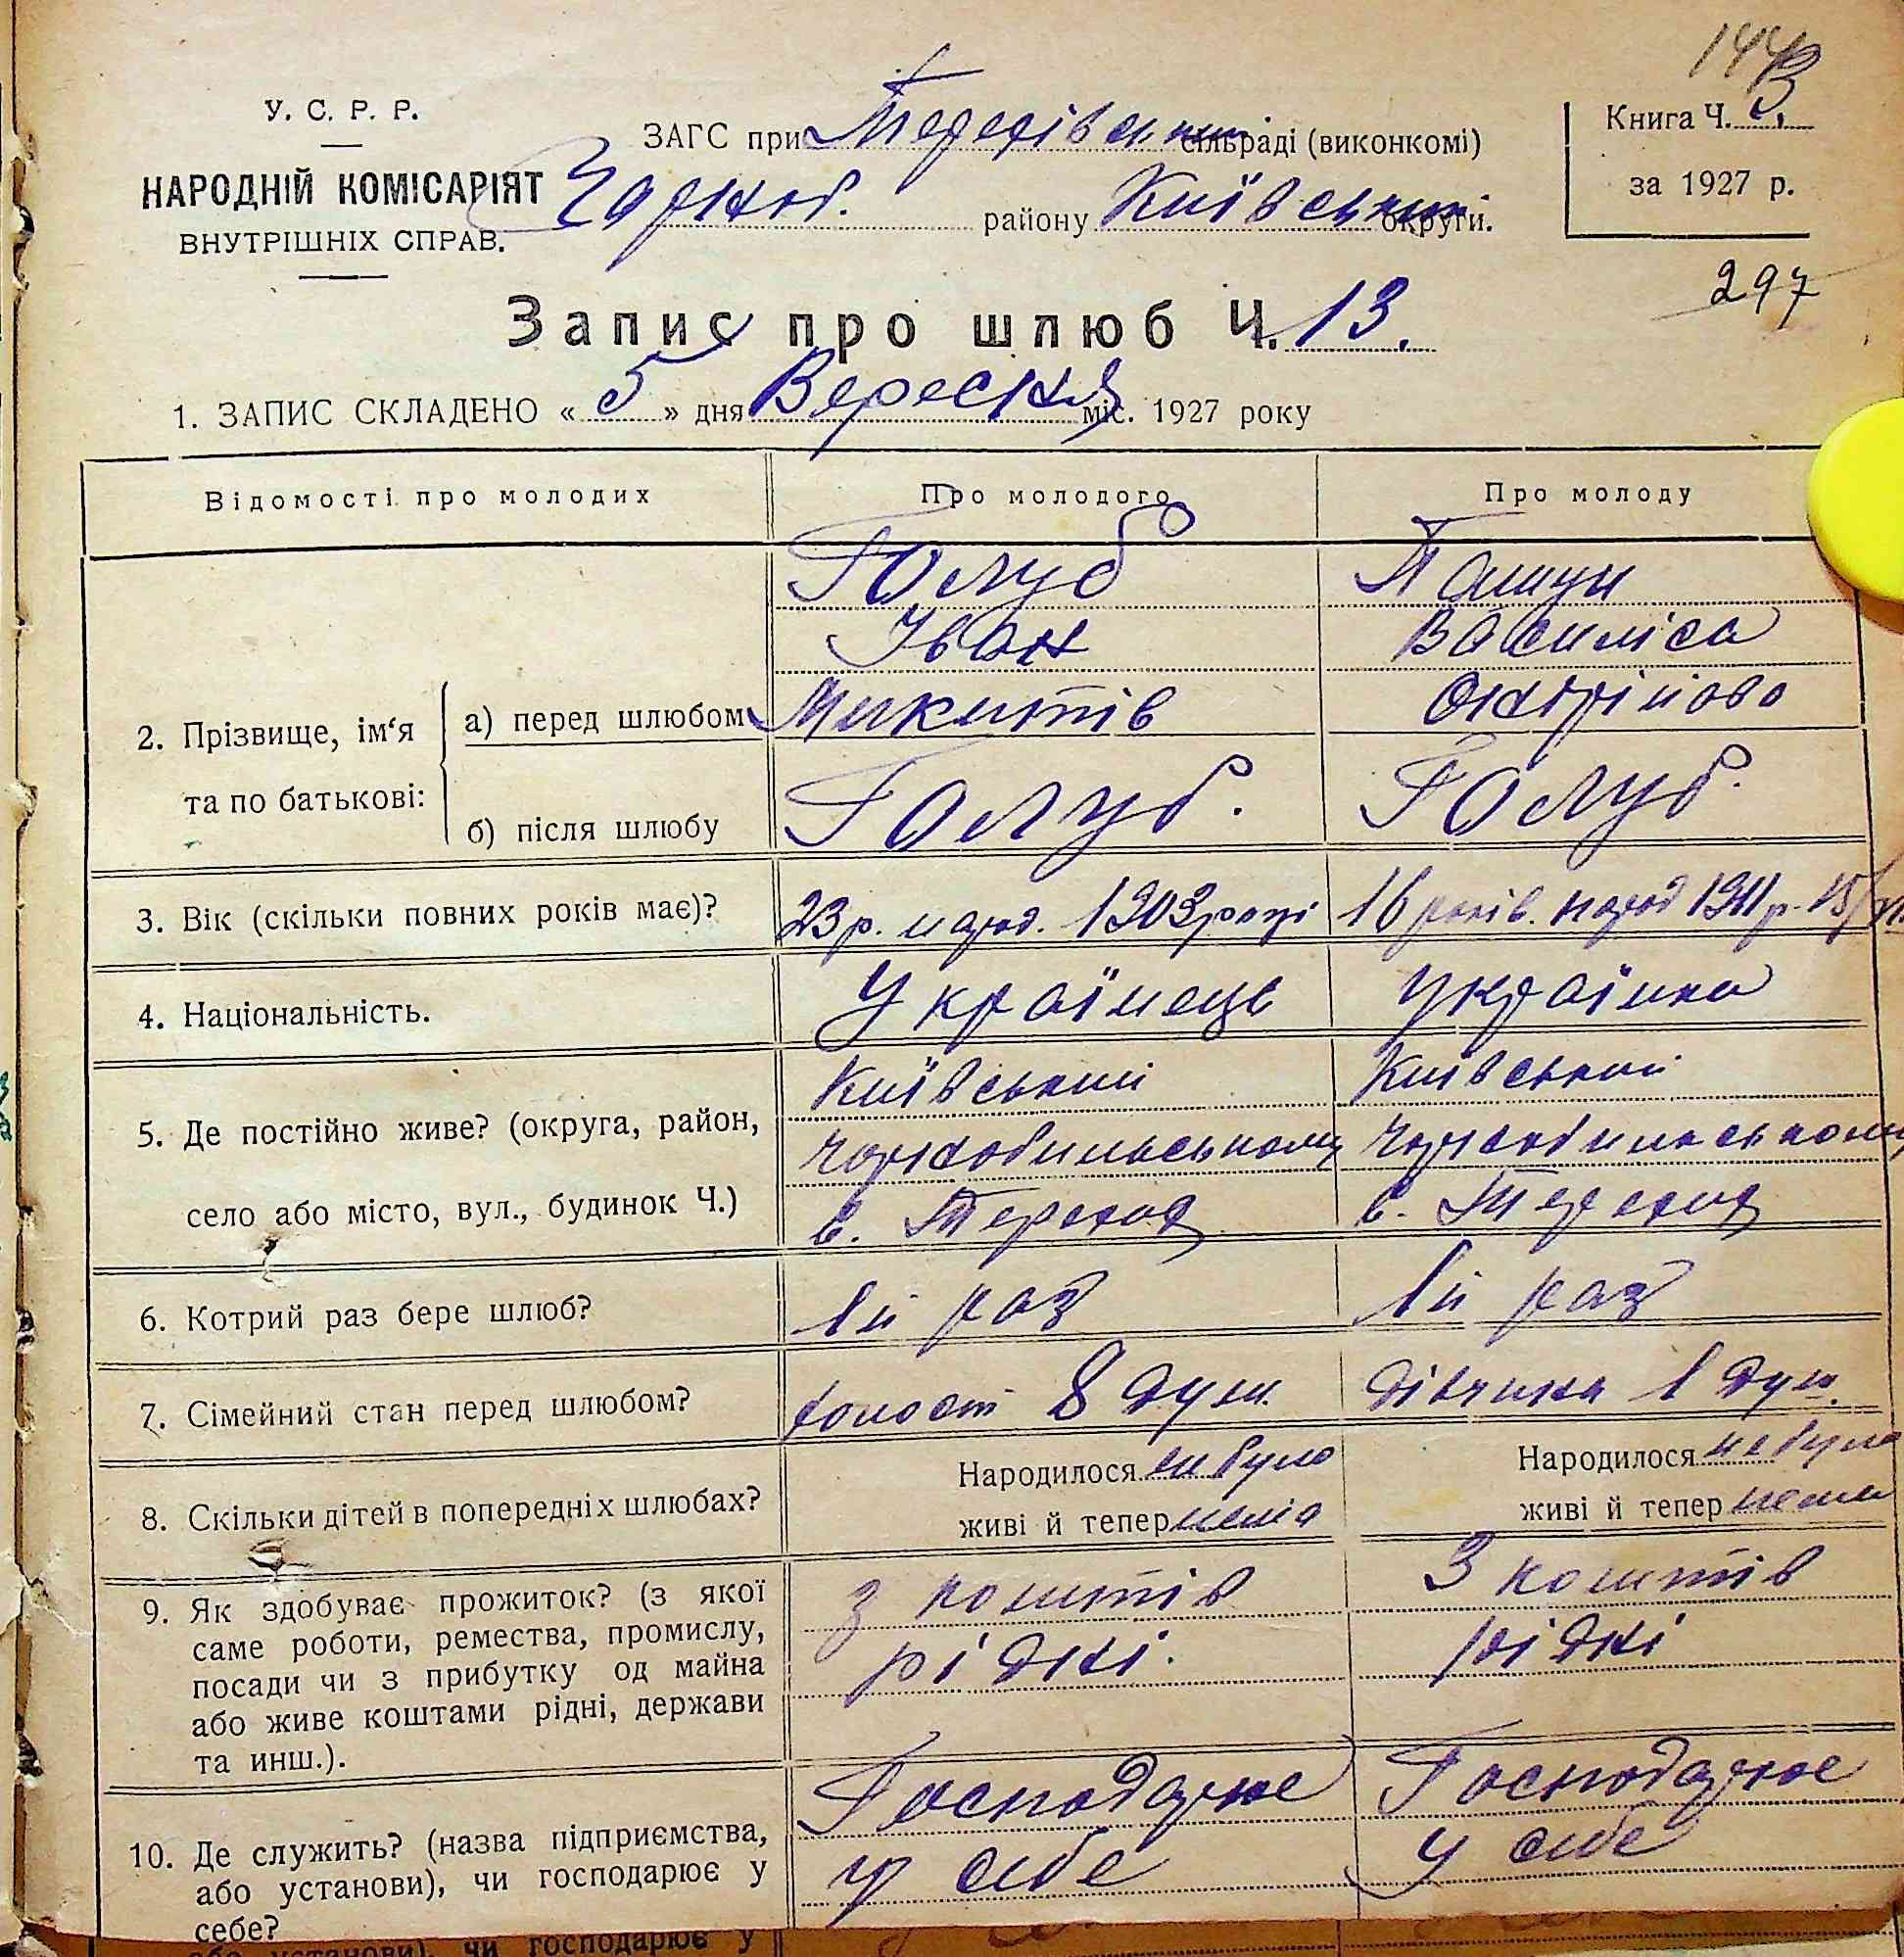 У. С. Р. Р.
НАРОДНІЙ КОМІСАРІЯТ
ВНУТРІШНІХ СПРАВ.
ЗАГС при сільраді (виконкомі)
Чорноб. району Київський округи.
Книга Ч. 3.
за 1927 р.
297
Запис про шлюб Ч. 13.
1. ЗАПИС СКЛАДЕНО « 5 » дня Вересня міс. 1927 року
Відомості про молодих
Про молодого
Про молоду
2. Прізвище, ім‘я та по батькові:
а) перед шлюбом
Голуб
Іван
Микитів
Василіса
Андрійова
б) після шлюбу
Голуб.
Голуб.
3. Вік (скільки повних років має)?
23 р. народ. 1903 році
16 років. народ 1911 р. 15/
4. Національність.
Українець
Українка
5. Де постійно живе? (округа, район,
село або місто, вул., будинок Ч.)
Київський
Чорнобильському
с.
Київський
Чорнобильському
с.
6. Котрий раз бере шлюб?
1й раз
1й раз
7. Сімейний стан перед шлюбом?
холост 8 душ.
дівчина 1 душ.
8. Скільки дітей в попередніх шлюбах?
Народилося не було
живі й тепер нема
Народилося не було
живі й тепер нема
9. Як здобуває прожиток? (з якої
саме роботи, ремества, промислу,
посади чи з прибутку од майна
або живе коштами рідні, держави
та инш.).
з коштів
рідні.
З коштів
рідні
10. Де служить? (назва підприємства,
або установи), чи господарює у
себе?
Господарює
у себе
Господарює
у себе
або установи), чи господарює у